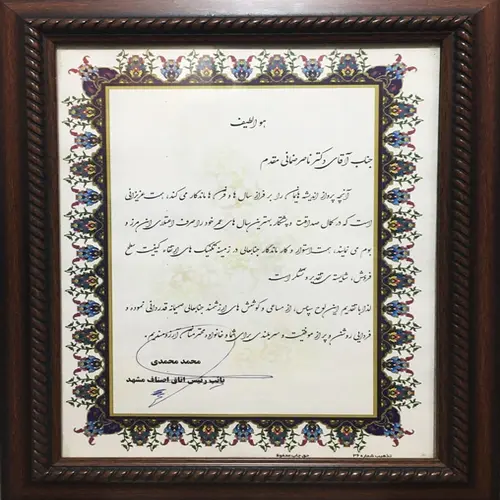 هو الطیف
جناب آقای دکتر ناصر ضمانی مقدم
آنچه پرواز اندیشه هایمان را بر فراز سال ها و قرن ها ماندگار می کند، همت عزیزانی
است که در کمال صداقت و پشتکار بهترین سال های عمر خود را صرف اعتلای این مرز و
بوم می نمایند، همت استوار و کار ماندگار جنابعالی در زمینه تکنیک های ارتقاء کیفیت سطح
فروش، شایسته ی تقدیر و تشکر است
لذا با تقدیم این لوح سپاس، از مساعی و کوشش های ارزشمند جنابعالی صمیمانه قدردانی نموده و
فردایی روشن و پر از موفقیت و سربلندی برای شما و خانواده محترمتان آرزومندیم.
محمد محمدی
نائب رئیس اتاق اصناف مشهد
حق چاپ محفوظ
تذهیب شماره ۳۶